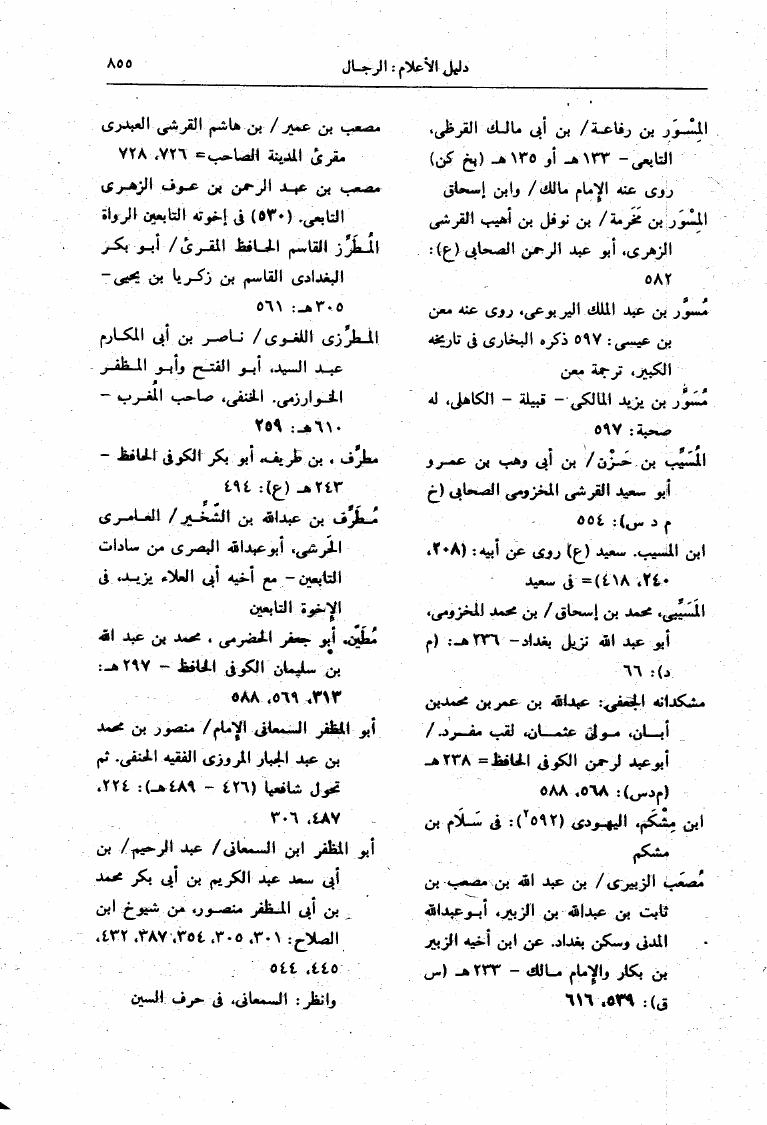 دليل الأعلام : الرجـال
٨٥٥
المِسْـوَر بن رفاعـة/ بن أبى مالـك القرظى،
التابعى- ١٣٣ هـ أو ١٣٥ هـ (بخ كن)
روى عنه الإمام مالك/ وابن إسحاق
المِسْوَر بن مَخْرمة/ بن نوفل بن أهيب القرشى
الزهرى، أبو عبد الرحمن الصحابى (ع):
٥٨٢
مُسوَّر بن عبد الملك اليربوعى، روى عنه معن
بن عيسى: ٥٩٧ ذكره البخارى فى تاريخه
الكبير، ترجمة معن
مُسَوَّر بن يزيد المالكى - قبيلة - الكاهلى، له
صحبة: ٥٩٧
المُسَيِّب بن حَـزْن/ بن أبى وهب بن عمـرو
أبو سعيد القرشى المخزومى الصحابى (خ
م د س): ٥٥٤
ابن المسيب. سعيد (ع) روى عن أبيه: (٢٠٨،
٢٤٠، ٤١٨)= فى سعيد
المَسَيَّبى، محمد بن إسحاق/ بن محمد المخزومى،
أبو عبد الله نزيل بغداد- ٢٣٦ هـ: (م
د): ٦٦
مشكدانه الجعفى: عبدالله بن عمربن محمدبن
أبــان، مـولى عثمـان، لقب مفـرد. /
أبوعبد لرحمن الكوفى الحافظ= ٢٣٨ هـ
(م‌دس): ٥٦٨، ٥٨٨
ابن مِشْكَم، اليهودى (٥٩٢٢): فى سَـلَام بن
مشكم
مُصعَب الزبيرى/ بن عبد الله بن مصعب بن
ثابت بن عبدالله بن الزبير، أبـوعبدالله
المدنى وسكن بغداد. عن ابن أخيه الزبير
بن بكار والإمام مـالك - ٢٣٣ هـ (س
ق): ٥٣٩، ٦١٦
مصعب بن عمير/ بن هاشم القرشى العبدرى
مقرئ المدينة الصاحب= ٧٢٦، ٧٢٨
مصعب بن عبـد الرحمن بن عـوف الزهـرى
التابعى. (٥٣٠) فى إخوته التابعين الرواة
المُـطرِّز القاسم الحـافظ المقـرئ/ أبـو بكـر
البغدادى القاسم بن زكـريا بن يحيى-
٣٠٥هـ: ٥٦١
المـطرِّزى اللغـوى/ نـاصـر بن أبى المكـارم
عبـد السيد، أبـو الفتـح وأبـو المـظفـر
الخـوارزمى. الحنفى، صاحب المُغـرب -
٦١٠هـ: ٢٥٩
مطرِّف . بن طريف. أبو بكر الكوفى الحافظ -
٢٤٣ هـ (ع): ٤٩٤
مُـطَرِّف بن عبدالله بن الشِّخِّـير/ العـامـرى
الحَرشى، أبوعبدالله البصرى من سادات
التابعين- مع أخيه أبى العلاء يزيـد، فى
الإخوة التابعين
مُطَيَّن، أبو جعفر الحضرمى ، محمد بن عبد الله
بن سليمان الكوفى الحافظ - ٢٩٧ هـ:
٣١٣، ٥٦٩، ٥٨٨
أبو المظفر السمعانى الإمام/ منصور بن محمد
بن عبد الجبار المروزى الفقيه الحنفى. ثم
تحول شافعيا (٤٢٦ - ٤٨٩هـ): ٢٢٤،
٤٨٧، ٣٠٦
أبو المظفر ابن السمعانى/ عبد الرحيم/ بن
أبى سعد عبد الكريم بن أبى بكر محمد
بن أبى المـظفر منصور، من شيوخ ابن
الصلاح: ٣٠١، ٣٠٥، ٣٥٤، ٣٨٧، ٤٣٢،
٤٤٥، ٥٤٤
وانظر: السمعانى، فى حرف السين